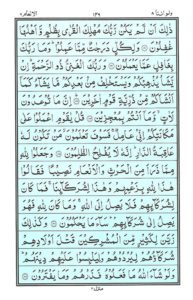 ولو اننا ٨ ١٣٩ الانعام ٦
ذٰلِكَ اَنْ لَّمْ يَكُنْ رَّبُّكَ مُهْلِكَ الْقُرٰى بِظُلْمٍ وَّاَهْلُهَا
غٰفِلُوْنَ ۝ وَلِكُلٍّ دَرَجٰتٌ مِّمَّا عَمِلُوْا ؕ وَمَا رَبُّكَ
بِغَافِلٍ عَمَّا يَعْمَلُوْنَ ۝ وَرَبُّكَ الْغَنِيُّ ذُو الرَّحْمَةِ ؕ اِنْ
يَّشَاْ يُذْهِبْكُمْ وَيَسْتَخْلِفْ مِنْۢ بَعْدِكُمْ مَّا يَشَآءُ كَمَاۤ
اَنْشَاَكُمْ مِّنْ ذُرِّيَّةِ قَوْمٍ اٰخَرِيْنَ ۝ اِنَّ مَا تُوْعَدُوْنَ
لَاٰتٍ ۙ وَّمَاۤ اَنْتُمْ بِمُعْجِزِيْنَ ۝ قُلْ يٰقَوْمِ اعْمَلُوْا عَلٰى
مَكَانَتِكُمْ اِنِّيْ عَامِلٌ ۚ فَسَوْفَ تَعْلَمُوْنَ ۙ مَنْ تَكُوْنُ لَهٗ
عَاقِبَةُ الدَّارِ ؕ اِنَّهٗ لَا يُفْلِحُ الظّٰلِمُوْنَ ۝ وَجَعَلُوْا لِلّٰهِ
مِمَّا ذَرَاَ مِنَ الْحَرْثِ وَالْاَنْعَامِ نَصِيْبًا فَقَالُوْا
هٰذَا لِلّٰهِ بِزَعْمِهِمْ وَهٰذَا لِشُرَكَآئِنَا ۚ فَمَا كَانَ
لِشُرَكَآئِهِمْ فَلَا يَصِلُ اِلَى اللّٰهِ ۚ وَمَا كَانَ لِلّٰهِ فَهُوَ
يَصِلُ اِلٰى شُرَكَآئِهِمْ ؕ سَآءَ مَا يَحْكُمُوْنَ ۝ وَكَذٰلِكَ
زَيَّنَ لِكَثِيْرٍ مِّنَ الْمُشْرِكِيْنَ قَتْلَ اَوْلَادِهِمْ
شُرَكَآؤُهُمْ لِيُرْدُوْهُمْ وَلِيَلْبِسُوْا عَلَيْهِمْ دِيْنَهُمْ ؕ
وَلَوْ شَآءَ اللّٰهُ مَا فَعَلُوْهُ فَذَرْهُمْ وَمَا يَفْتَرُوْنَ ۝
منزل ٢